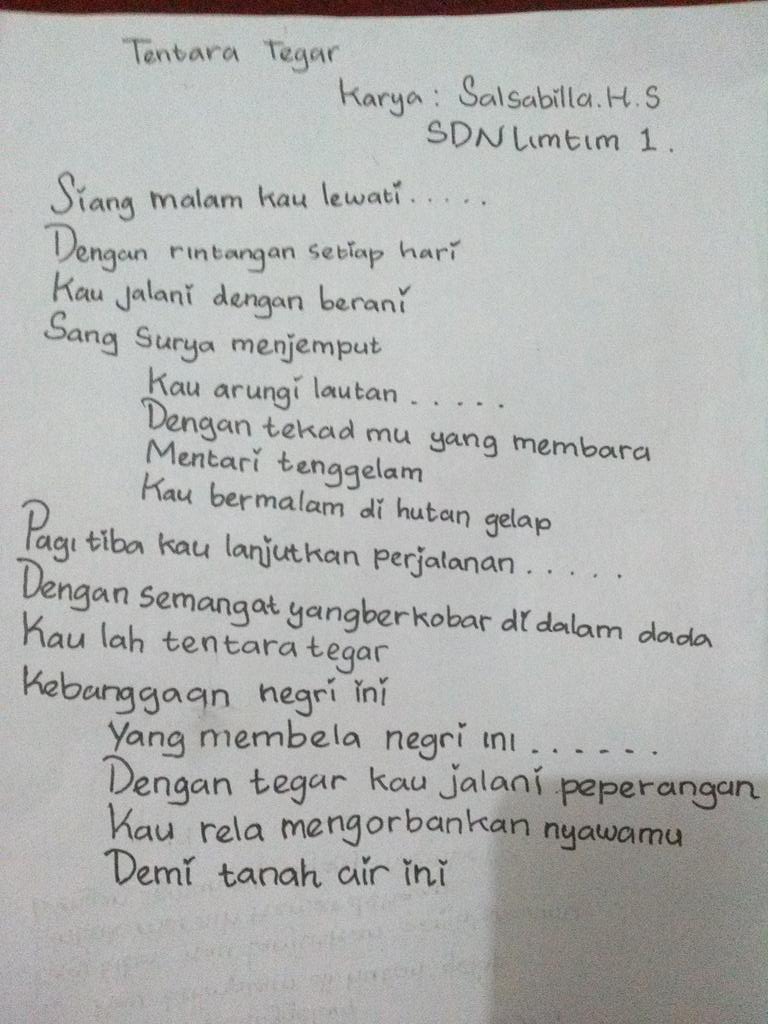 Tentara Tegar
Karya : Salsabilla.H.S
SDN Limtim 1.
Siang malam kau lewati.....
Dengan rintangan setiap hari
Kau jalani dengan berani
Sang Surya menjemput
Kau arungi lautan .....
Dengan tekad mu yang membara
Mentari tenggelam
Kau bermalam di hutan gelap
Pagi tiba kau lanjutkan perjalanan .....
Dengan semangat yangberkobar di dalam dada
Kau lah tentara tegar
Kebanggaan negri ini
Yang membela negri ini ......
Dengan tegar kau jalani peperangan
Kau rela mengorbankan nyawamu
Demi tanah air ini